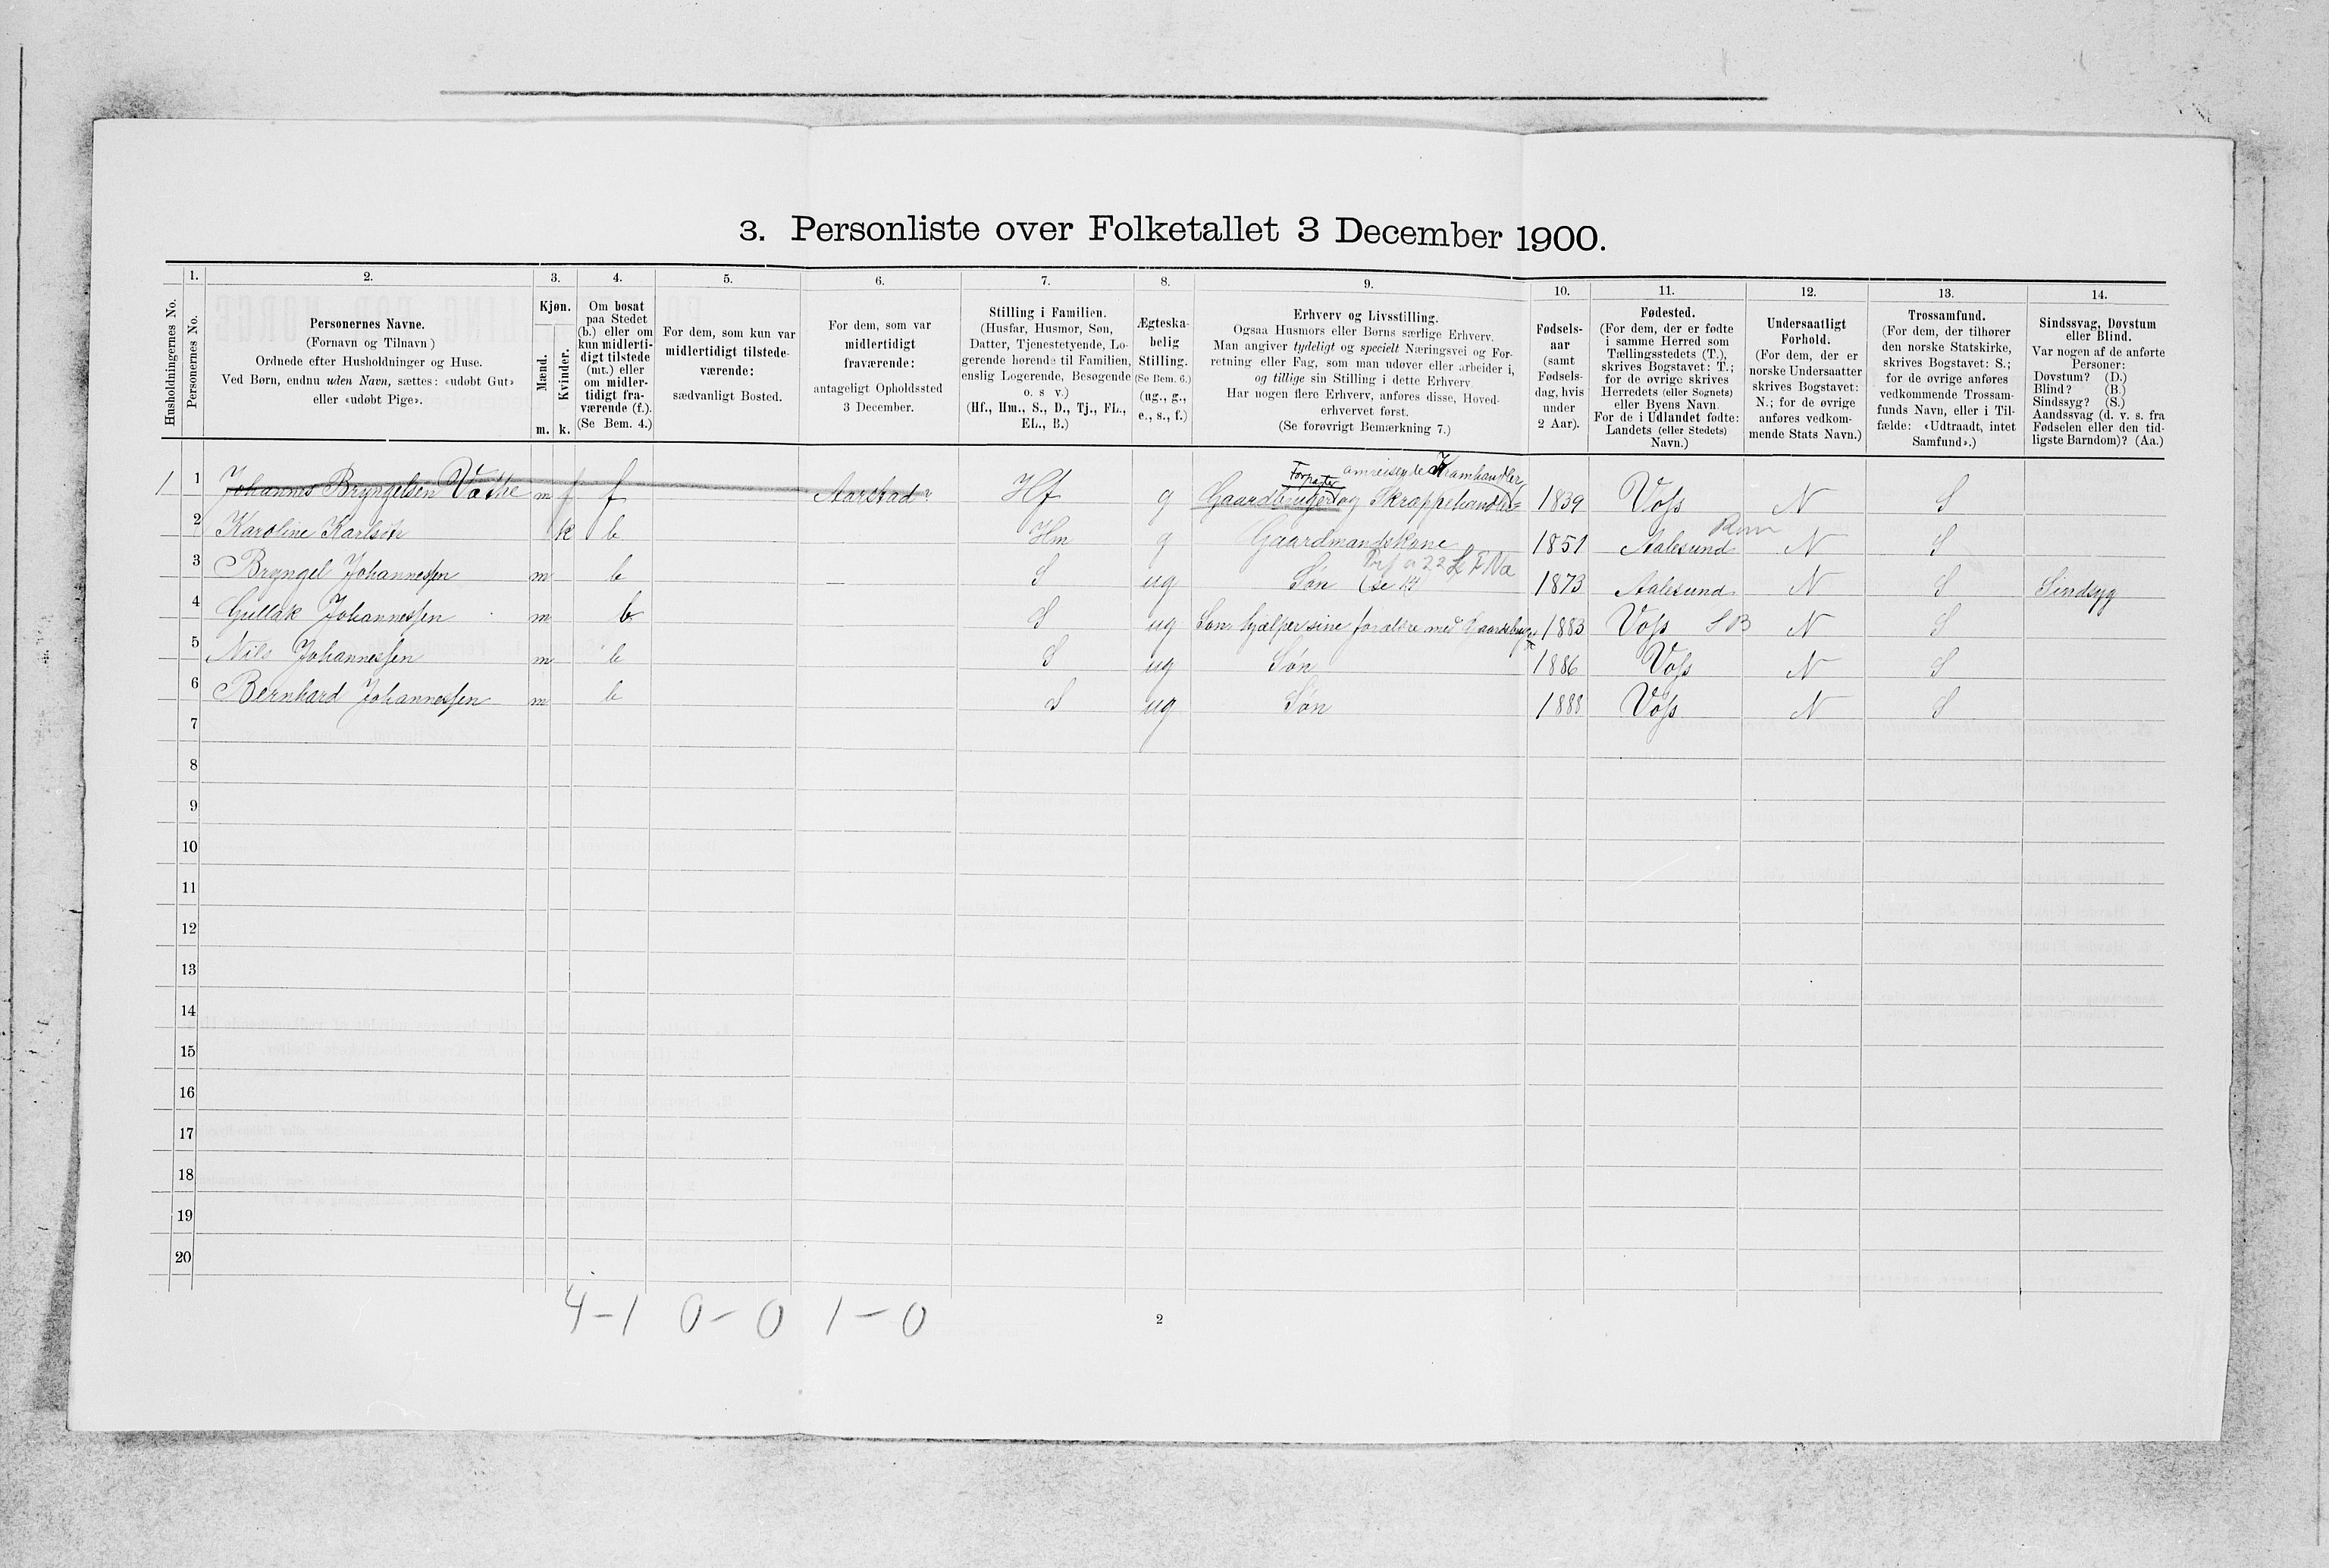 3. Personliste over Folketallet 3 December 1900.
1. 2. 3. 4. 5. 6. 7. 8. 9. 10. 11. 12. 13. 14.
Husholdningernes No.
Personernes No.
Personernes Navne.
(Fornavn og Tilnavn)
Ordnede efter Husholdninger og Huse.
Ved Børn, endnu uden Navn, sættes: «udøbt Gut»
eller «udøbt Pige».
Kjøn.
Mænd.
Kvinder.
m. k.
Om bosat
paa Stedet
(b.) eller om
kun midlerti-
digt tilstede
(mt.) eller
om midler-
tidigt fra-
værende (f.).
(Se Bem. 4.)
For dem, som kun var
midlertidigt tilstede-
værende:
sædvanligt Bosted.
For dem, som var
midlertidigt
fraværende:
antageligt Opholdssted
3 December.
Stilling i Familien.
(Husfar, Husmor, Søn,
Datter, Tjenestetyende, Lo-
gerende hørende til Familien,
enslig Logerende, Besøgende
o. s. v.)
(Hf., Hm., S., D., Tj., FL.,
EL., B.)
Ægteska-
belig
Stilling.
(Se Bem. 6.)
(ug., g.,
e., s., f.)
Erhverv og Livsstilling.
Ogsaa Husmors eller Børns særlige Erhverv.
Man angiver tydeligt og specielt Næringsvei og For-
retning eller Fag, som man udøver eller arbeider i,
og tillige sin Stilling i dette Erhverv.
Har nogen flere Erhverv, anføres disse, Hoved-
erhvervet først.
(Se forøvrigt Bemærkning 7.)
Fødsels-
aar
(samt
Fødsels-
dag, hvis
under
2 Aar).
Fødested.
(For dem, der er fødte
i samme Herred som
Tællingsstedets (T.),
skrives Bogstavet: T.;
for de øvrige skrives
Herredets (eller Sognets)
eller Byens Navn.
For de i Udlandet fødte:
Landets (eller Stedets)
Navn.)
Undersaatligt
Forhold.
(For dem, der er
norske Undersaatter
skrives Bogstavet:
N.; for de øvrige
anføres vedkom-
mende Stats Navn.)
Trossamfund.
(For dem, der tilhører
den norske Statskirke,
skrives Bogstavet: S.;
for de øvrige anføres
vedkommende Trossam-
funds Navn, eller i Til-
fælde: «Udtraadt, intet
Samfund».)
Sindssvag, Døvstum
eller Blind.
Var nogen af de anførte
Personer:
Døvstum? (D.)
Blind? (B.)
Sindssyg? (S.)
Aandssvag (d. v. s. fra
Fødselen eller den tid-
ligste Barndom)? (Aa.)
omreisende Kramhandler
1 1 Johannes Bryngelsen m f Hf g Gaardbruger og Skraphandler 1839 Voss N S
2 Karoline Karlsen k b Hm g Gaardmandskone 1851 Aalesund N S
3 Bryngel Johannessen m b S ug Søn 1873 Aalesund N S Sindsyg
4 Gullak Johannessen m b S ug Søn hjælper sine forældre med 1883 Voss SB N S
5 Nils Johannessen m b S ug Søn 1886 Voss N S
6 Bernhard Johannessen m b S ug Søn 1888 Voss N S
7
8
9
10
11
12
13
14
15
16
17
18
19
20
4-1 0-0 1-0
2